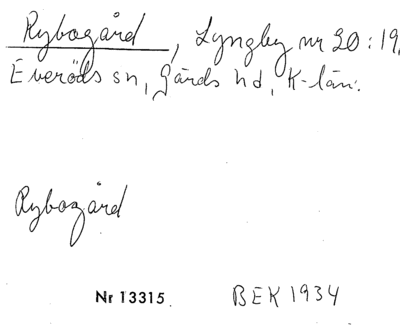 Rybogård, Lyngby nr 20:19,
Everöds sn, Gärds hd, K-län.
Rybogård
Nr 13315. BEK 1934